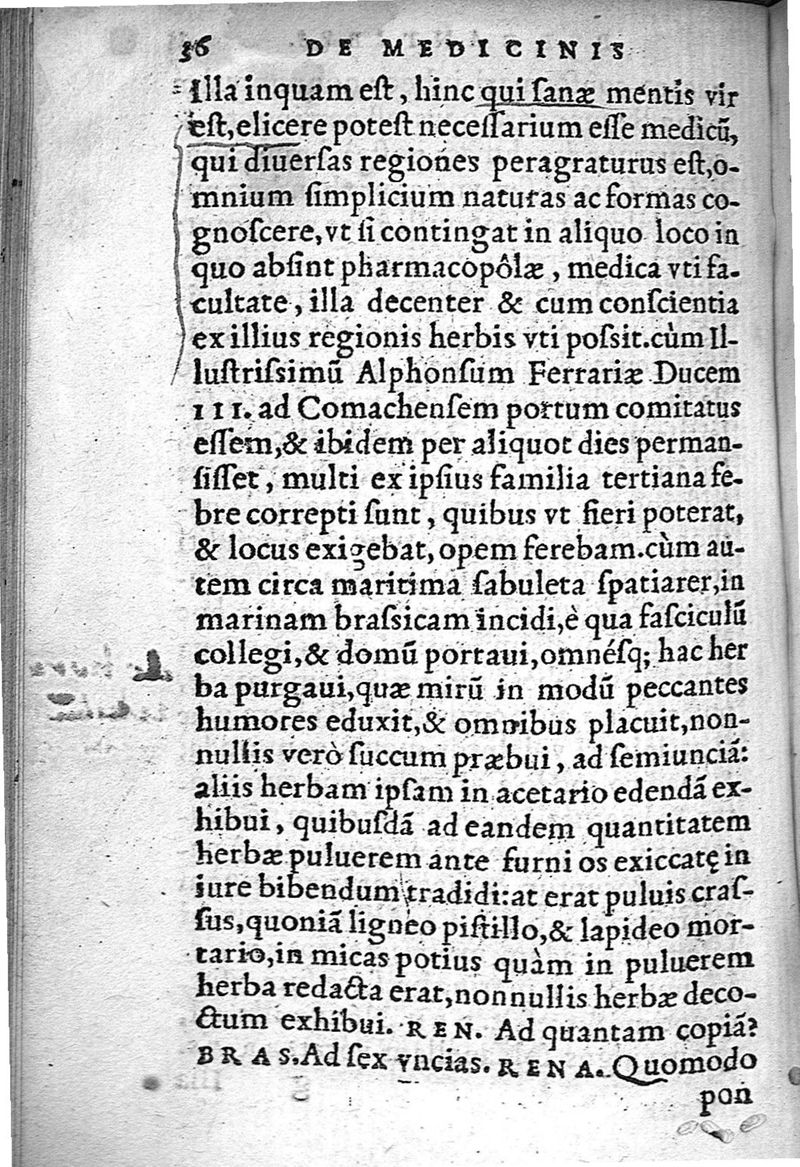 36 DE MEDICINIS
Illa inquam est, hinc qui sanæ mentis vir
est, elicere potest necessarium esse medicū,
qui diuersas regiones peragraturus est, o-
mnium simplicium naturas ac formas co-
gnoscere, vt si contingat in aliquo loco in
quo absint pharmacopôlæ, medica vti fa-
cultate, illa decenter & cum conscientia
ex illius regionis herbis vti possit. cùm Il-
lustrissimū Alphonsum Ferrariæ Ducem
III. ad Comachensem portum comitatus
essem, & ibidem per aliquot dies perman-
sisset, multi ex ipsius familia tertiana fe-
bre correpti sunt, quibus vt fieri poterat,
& locus exigebat, opem ferebam. cùm au-
tem circa maritima sabuleta spatiarer, in
marinam brassicam incidi, è qua fasciculū
collegi, & domū portaui, omnésq; hac her
ba purgaui, quæ mirū in modū peccantes
humores eduxit, & omnibus placuit, non-
nullis verò succum præbui, ad semiunciā:
aliis herbam ipsam in acetario edendā ex-
hibui, quibusdā ad eandem quantitatem
herbæ puluerem ante furni os exiccatę in
iure bibendum tradidi: at erat puluis cras-
sus, quoniā ligneo pistillo, & lapideo mor-
tario, in micas potius quàm in puluerem
herba redacta erat, nonnullis herbæ deco-
ctum exhibui. REN. Ad quantam copiā?
BRAS. Ad sex vncias. RENA. Quomodo
pon